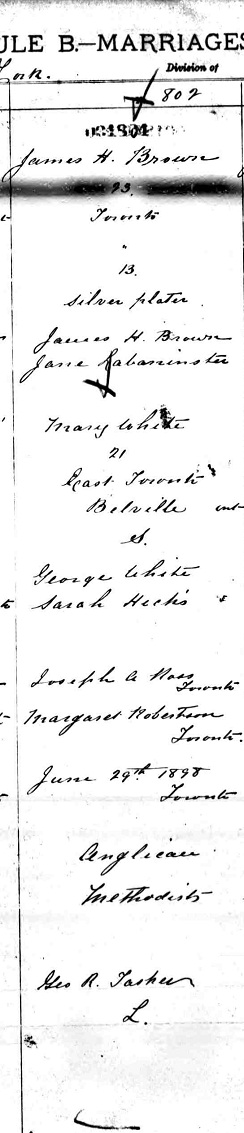 ULE B.—MARRIAGES
York. Division of
802
James H. Brown
23.
Toronto
"
B.
Silver plater
James H. Brown
Jane
Mary White
21
East Toronto
Belville ont
S.
George White
Sarah Hicks
Joseph A Ross
Toronto
Margaret Robertson
Toronto.
June 29th 1898
Toronto
Anglican
Methodist
Geo R.
L.